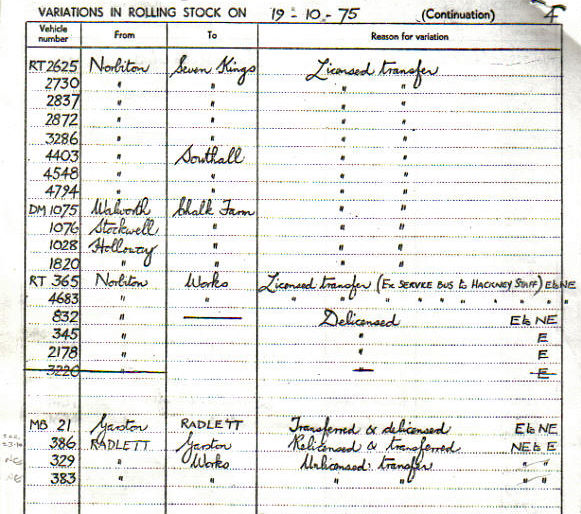 VARIATIONS IN ROLLING STOCK ON 19 - 10 - 75 (Continuation) 4
Vehicle number From To Reason for variation
RT 2625 Norbiton Seven Kings Licensed transfer
2730 " " " "
2837 " " " "
2872 " " " "
3286 " " " "
4403 " Southall " "
4548 " " " "
4794 " " " "
DM 1075 Walworth Chalk Farm " "
1076 Stockwell " " "
1028 Holloway " " "
1820 " " " "
RT 365 Norbiton Works Licensed transfer (Ex SERVICE BUS to HACKNEY STAFF) E to NE
4683 " " " " " " " " " " "
832 " Delicensed E to NE
345 " " E
2178 " " E
3220 " " E
MB 21 Garston RADLETT Transferred & delicensed E to NE
386 RADLETT Garston Relicensed & transferred NE to E
NE 329 " Works Unlicensed transfer " "
NE 383 " " " " " "